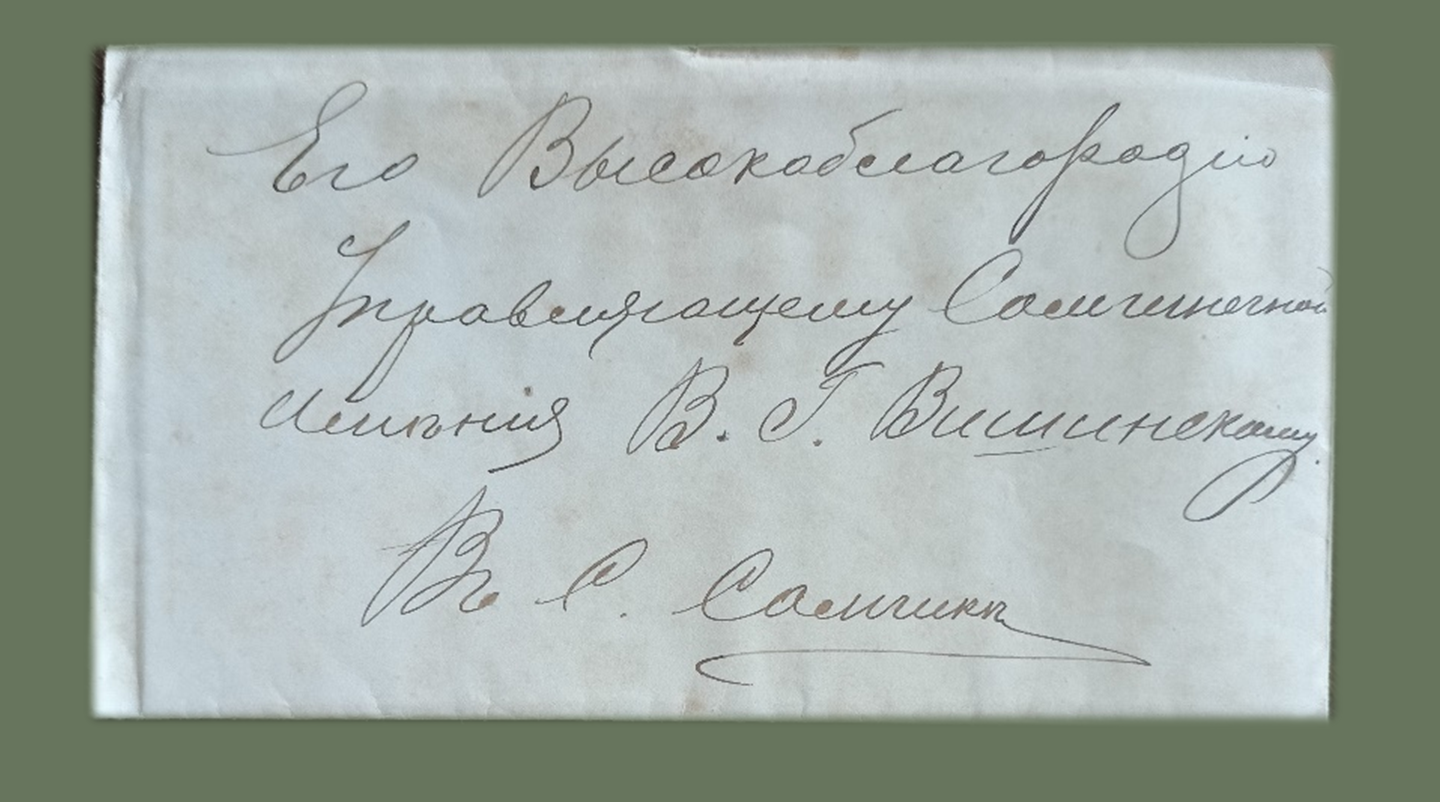 Его Высокоблагородію
Управляющему Самчинечной
Имѣнія В. Г. Вишинскому.
Въ С. Самчикъ